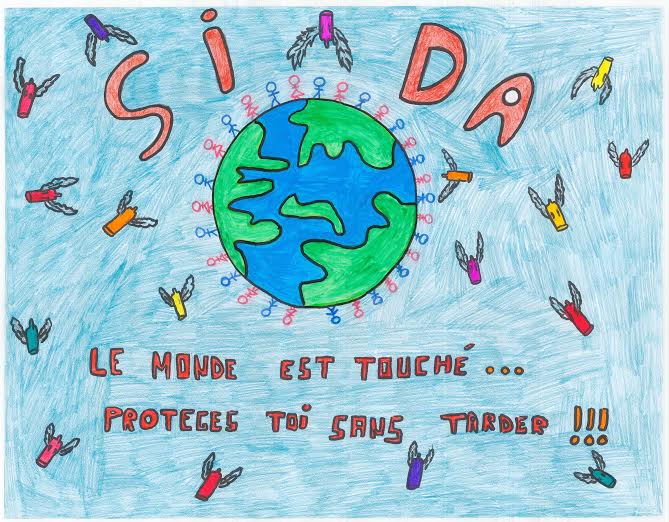 SiDA
LE MONDE EST TOUCHÉ...
PROTEGES TOi SANS TARDER !!!